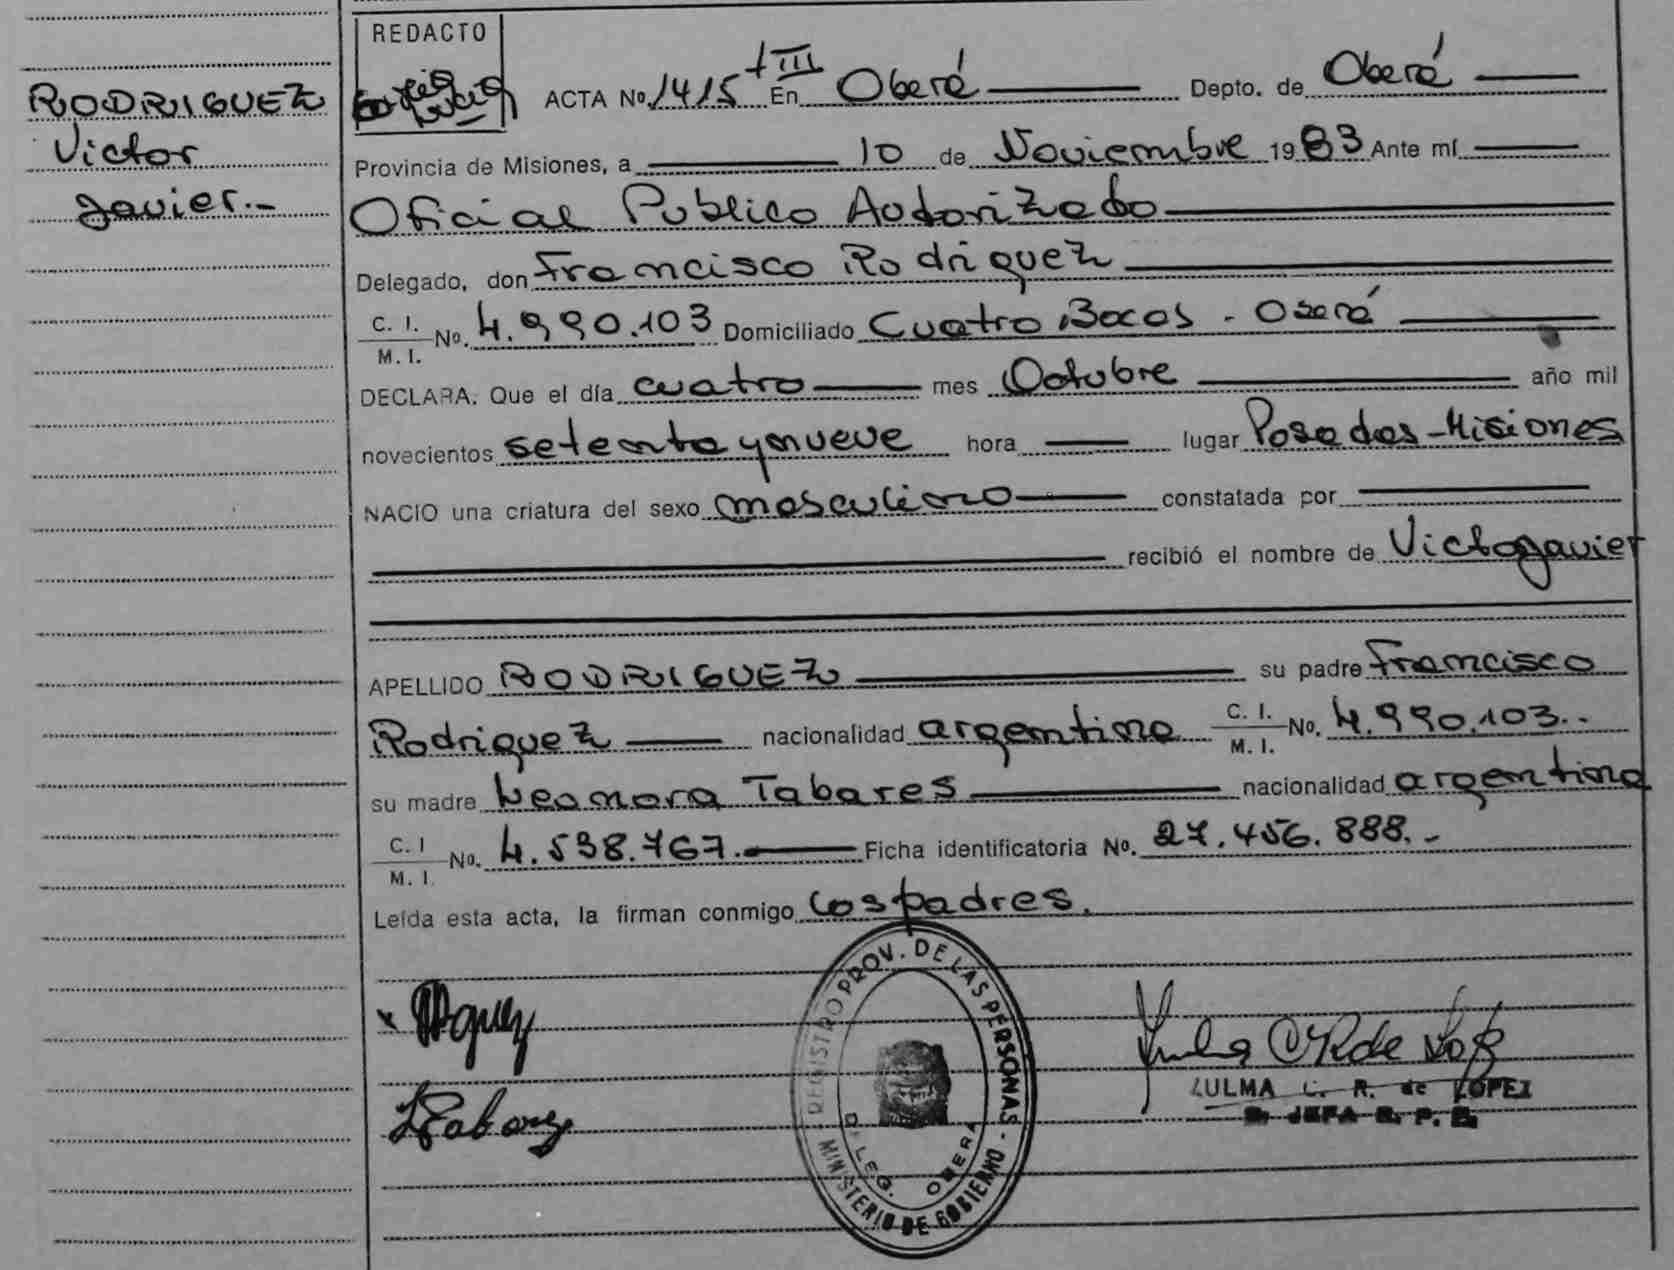 RODRIGUEZ
Victor
Javier.-
REDACTO
ACTA No. 1415 tIII En Oberá Depto. de Oberá
Provincia de Misiones, a 10 de Noviembre 1983 Ante mí
Oficial Publico Autorizado
Delegado, don Francisco Rodriguez
C. I. / M. I. No. 4.990.103 Domiciliado Cuatro Bocas - Oberá
DECLARA: Que el día cuatro mes Octubre año mil
novecientos setenta y nueve hora lugar Posadas-Misiones
NACIO una criatura del sexo masculino constatada por
recibió el nombre de Victor Javier
APELLIDO RODRIGUEZ su padre Francisco
Rodriguez nacionalidad argentina C. I. / M. I. No. 4.990.103..
su madre Leonora Tabares nacionalidad argentina
C. I / M. I. No. 4.538.767. Ficha identificatoria No. 27.456.888.-
Leída esta acta, la firman conmigo los padres.
REGISTRO PROV. DE LAS PERSONAS - MINISTERIO DE GOBIERNO -
DELEG. OBERA
ZULMA C. R. de LOPEZ
JEFA R. P.